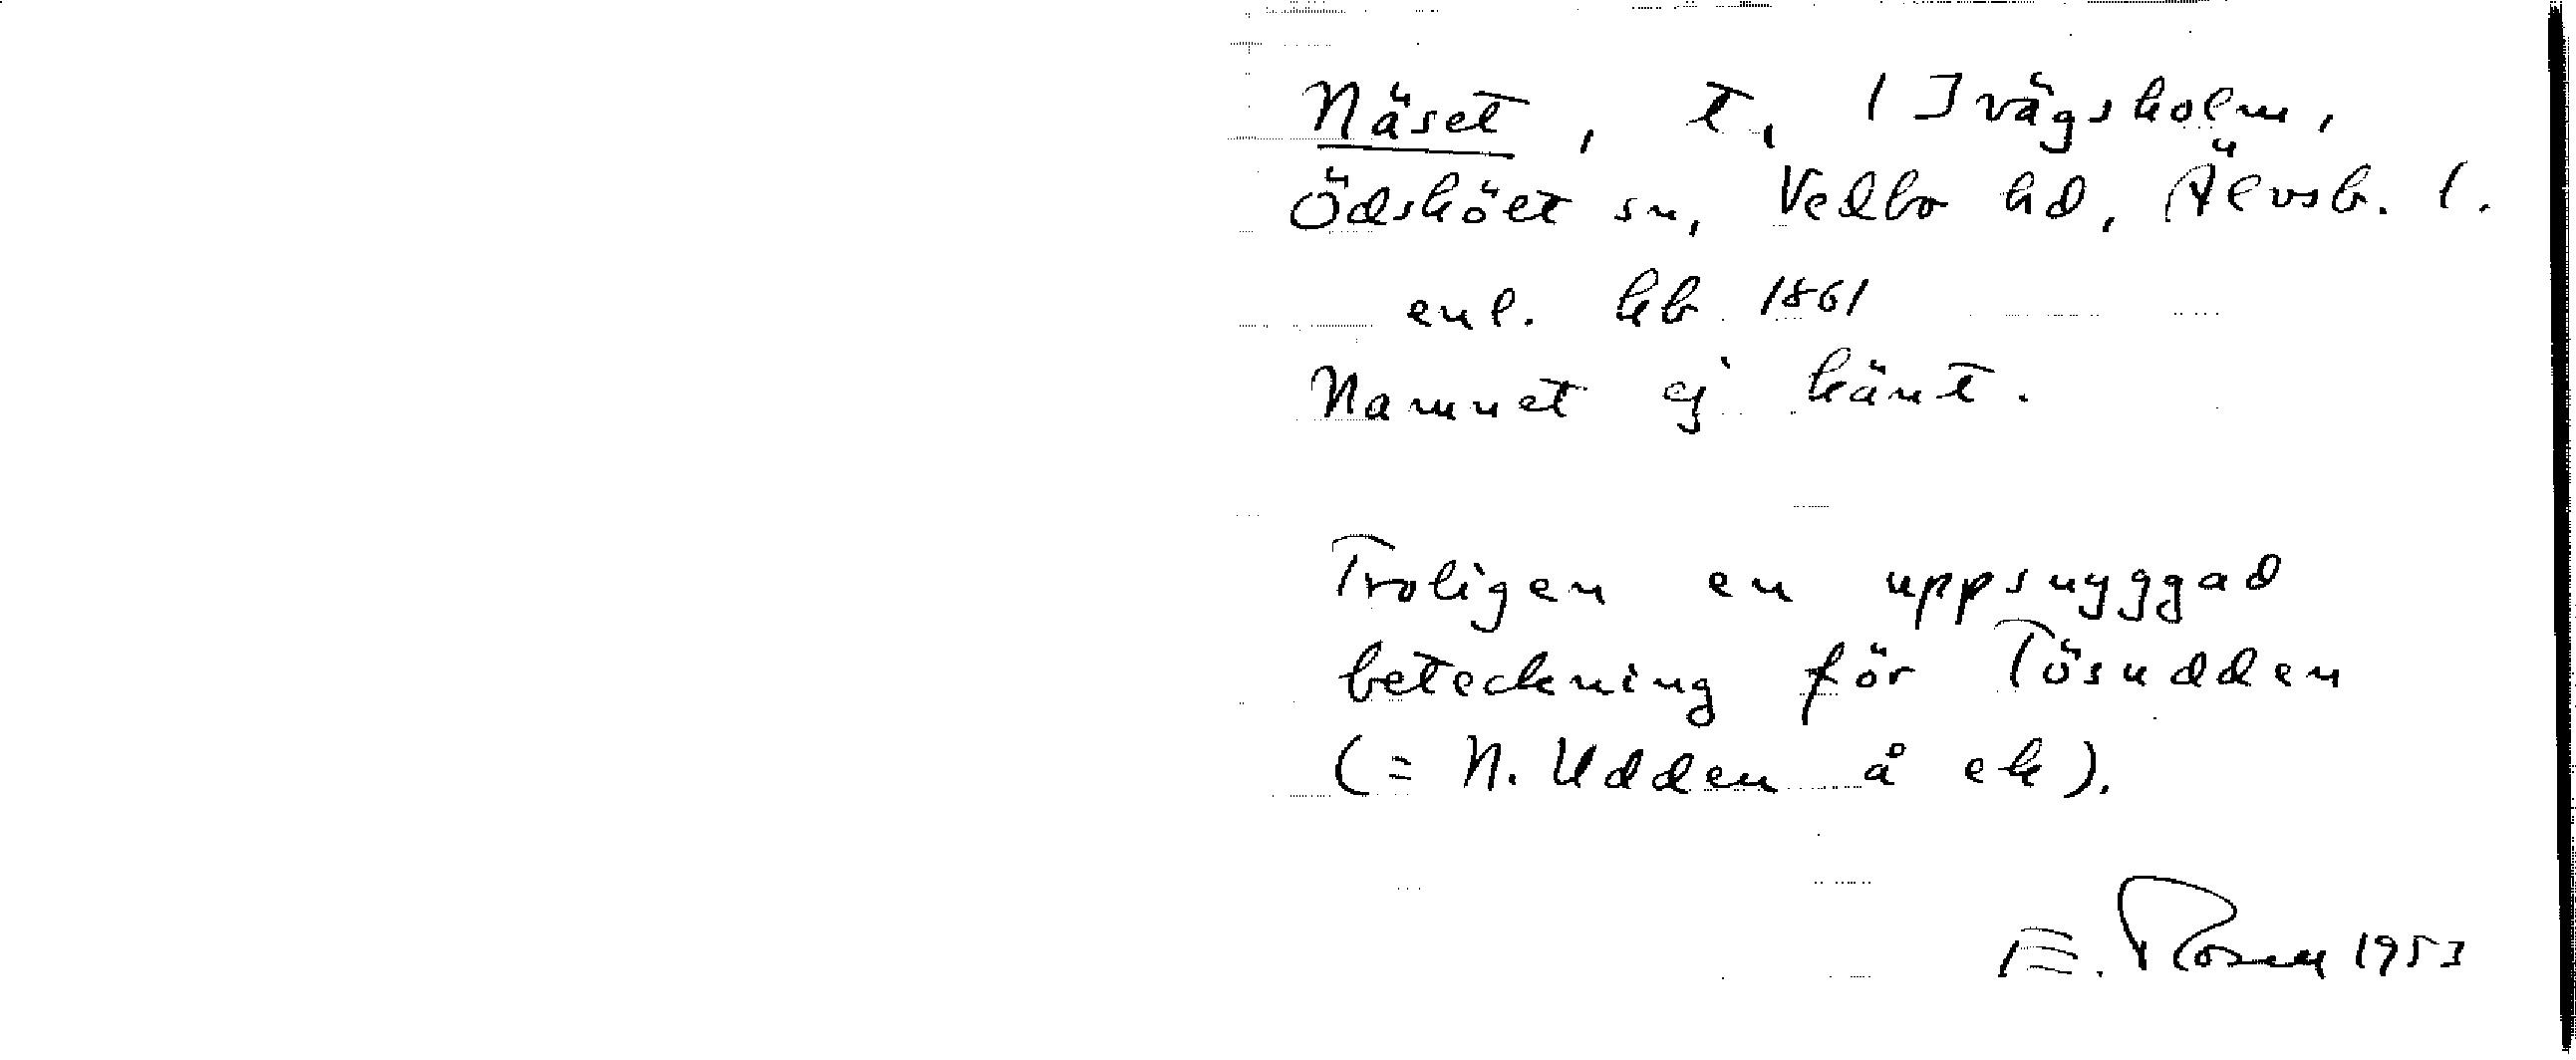 Näset, t, 1 Ivägsholm,
Ödskölt sn, Vedbo hd, Älvsb. l.
enl. kb 1861
Namnet ej känt.
Troligen en uppsnyggad
beteckning för Tösudden
(= N. Udden å ek).
E. Rosell 1953